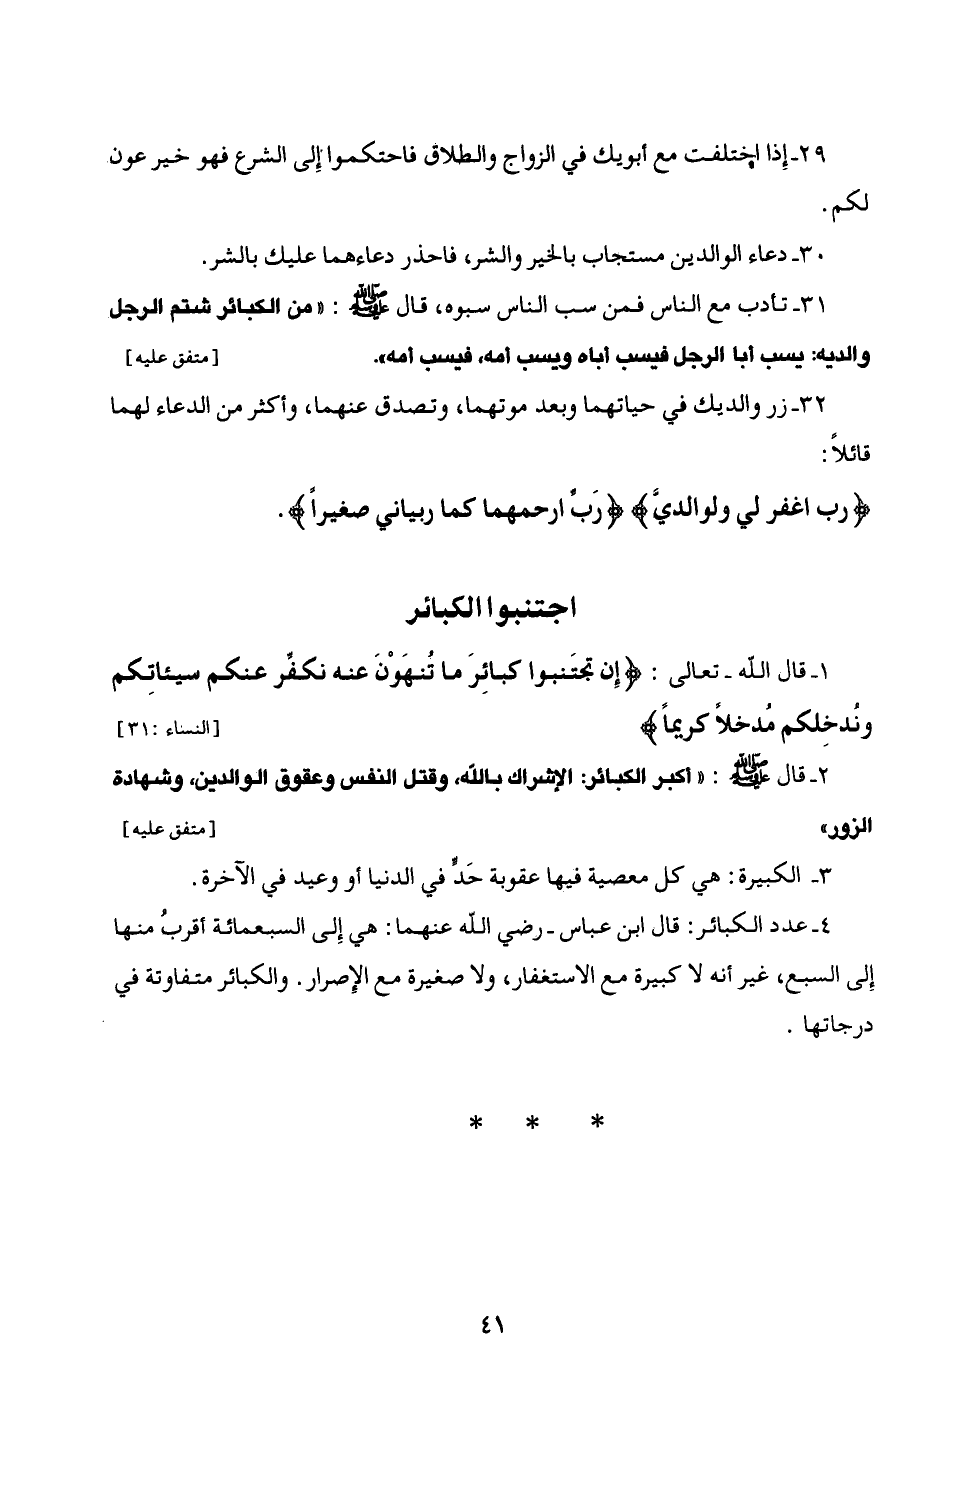 ٢٩ـ إذا اختلفت مع أبويك في الزواج والطلاق فاحتكموا إلى الشرع فهو خير عون
لكم.
٣٠ـ دعاء الوالدين مستجاب بالخير والشر، فاحذر دعاءهما عليك بالشر.
٣١ـ تأدب مع الناس فمن سب الناس سبوه، قال ﷺ : «من الكبائر شتم الرجل
والديه: يسب أبا الرجل فيسب أباه ويسب أمه، فيسب أمه». [متفق عليه]
٣٢ـ زر والديك في حياتهما وبعد موتهما، وتصدق عنهما، وأكثر من الدعاء لهما
قائلاً:
﴿رب اغفر لي ولوالديَّ﴾ ﴿رَبِّ ارحمهما كما ربياني صغيراً﴾.
اجتنبوا الكبائر
١ـ قال اللّه ـ تعالى : ﴿إِن تجتَنبوا كبائِرَ ما تُنهَوْنَ عنه نكفِّر عنكم سيئاتِكم
ونُدخِلكم مُدخلاً كريماً﴾ [النساء :٣١]
٢ـ قال ﷺ : «أكبر الكبائر: الإشراك بالله، وقتل النفس وعقوق الوالدين، وشهادة
الزور» [متفق عليه]
٣ـ الكبيرة: هي كل معصية فيها عقوبة حَدٍّ في الدنيا أو وعيد في الآخرة.
٤ـ عدد الكبائر: قال ابن عباس ـ رضي اللّه عنهما: هي إلى السبعمائة أقربُ منها
إلى السبع، غير أنه لا كبيرة مع الاستغفار، ولا صغيرة مع الإصرار. والكبائر متفاوتة في
درجاتها .
* * *
٤١